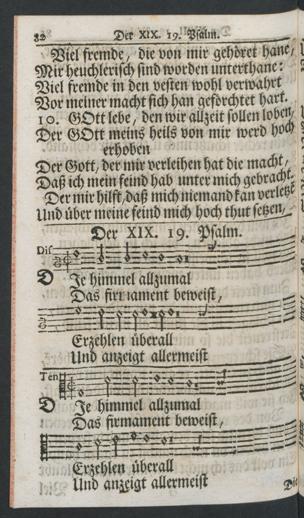 82 Der XIX. 19. Psalm.
Viel fremde, die von mir gehöret hane,
Mir heuchlerisch sind worden unterthane:
Viel fremde in den vesten wohl verwahrt
Vor meiner macht sich han geförchtet hart.
10. GOtt lebe, den wir allzeit sollen loben,
Der GOtt meins heils von mir werd hoch
erhoben
Der Gott, der mir verleihen hat die macht,
Daß ich mein feind hab unter mich gebracht.
Der mir hilft, daß mich niemand kan verletze
Und über meine feind mich hoch thut setzen,
Der XIX. 19. Psalm.
Dis
DJe himmel allzumal
Das firmament beweist,
Erzehlen überall
Und anzeigt allermeist
Ten
DJe himmel allzumal
Das firmament beweist,
Erzehlen überall
Und anzeigt allermeist
Die